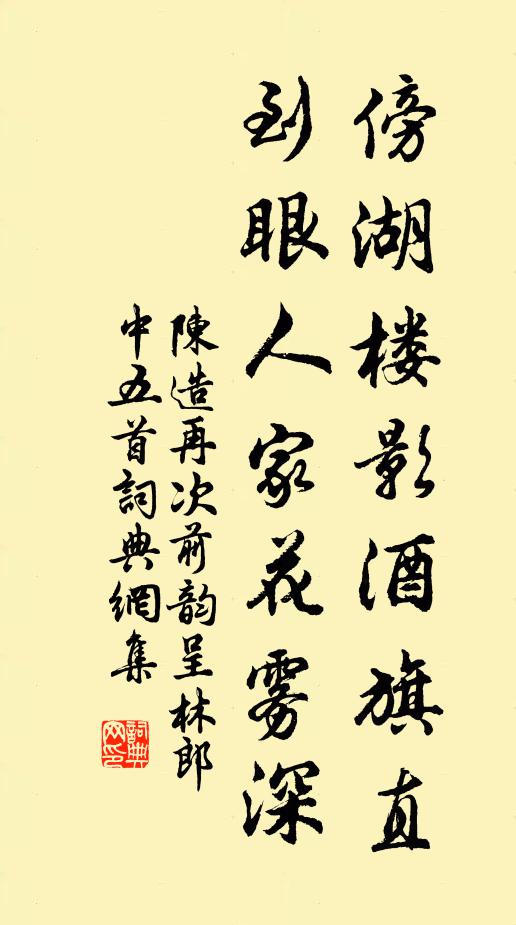 傍湖楼影酒旗直
到眼人家花雾深
陳造再次前韵呈林郎
中五首詞典網集
詞典